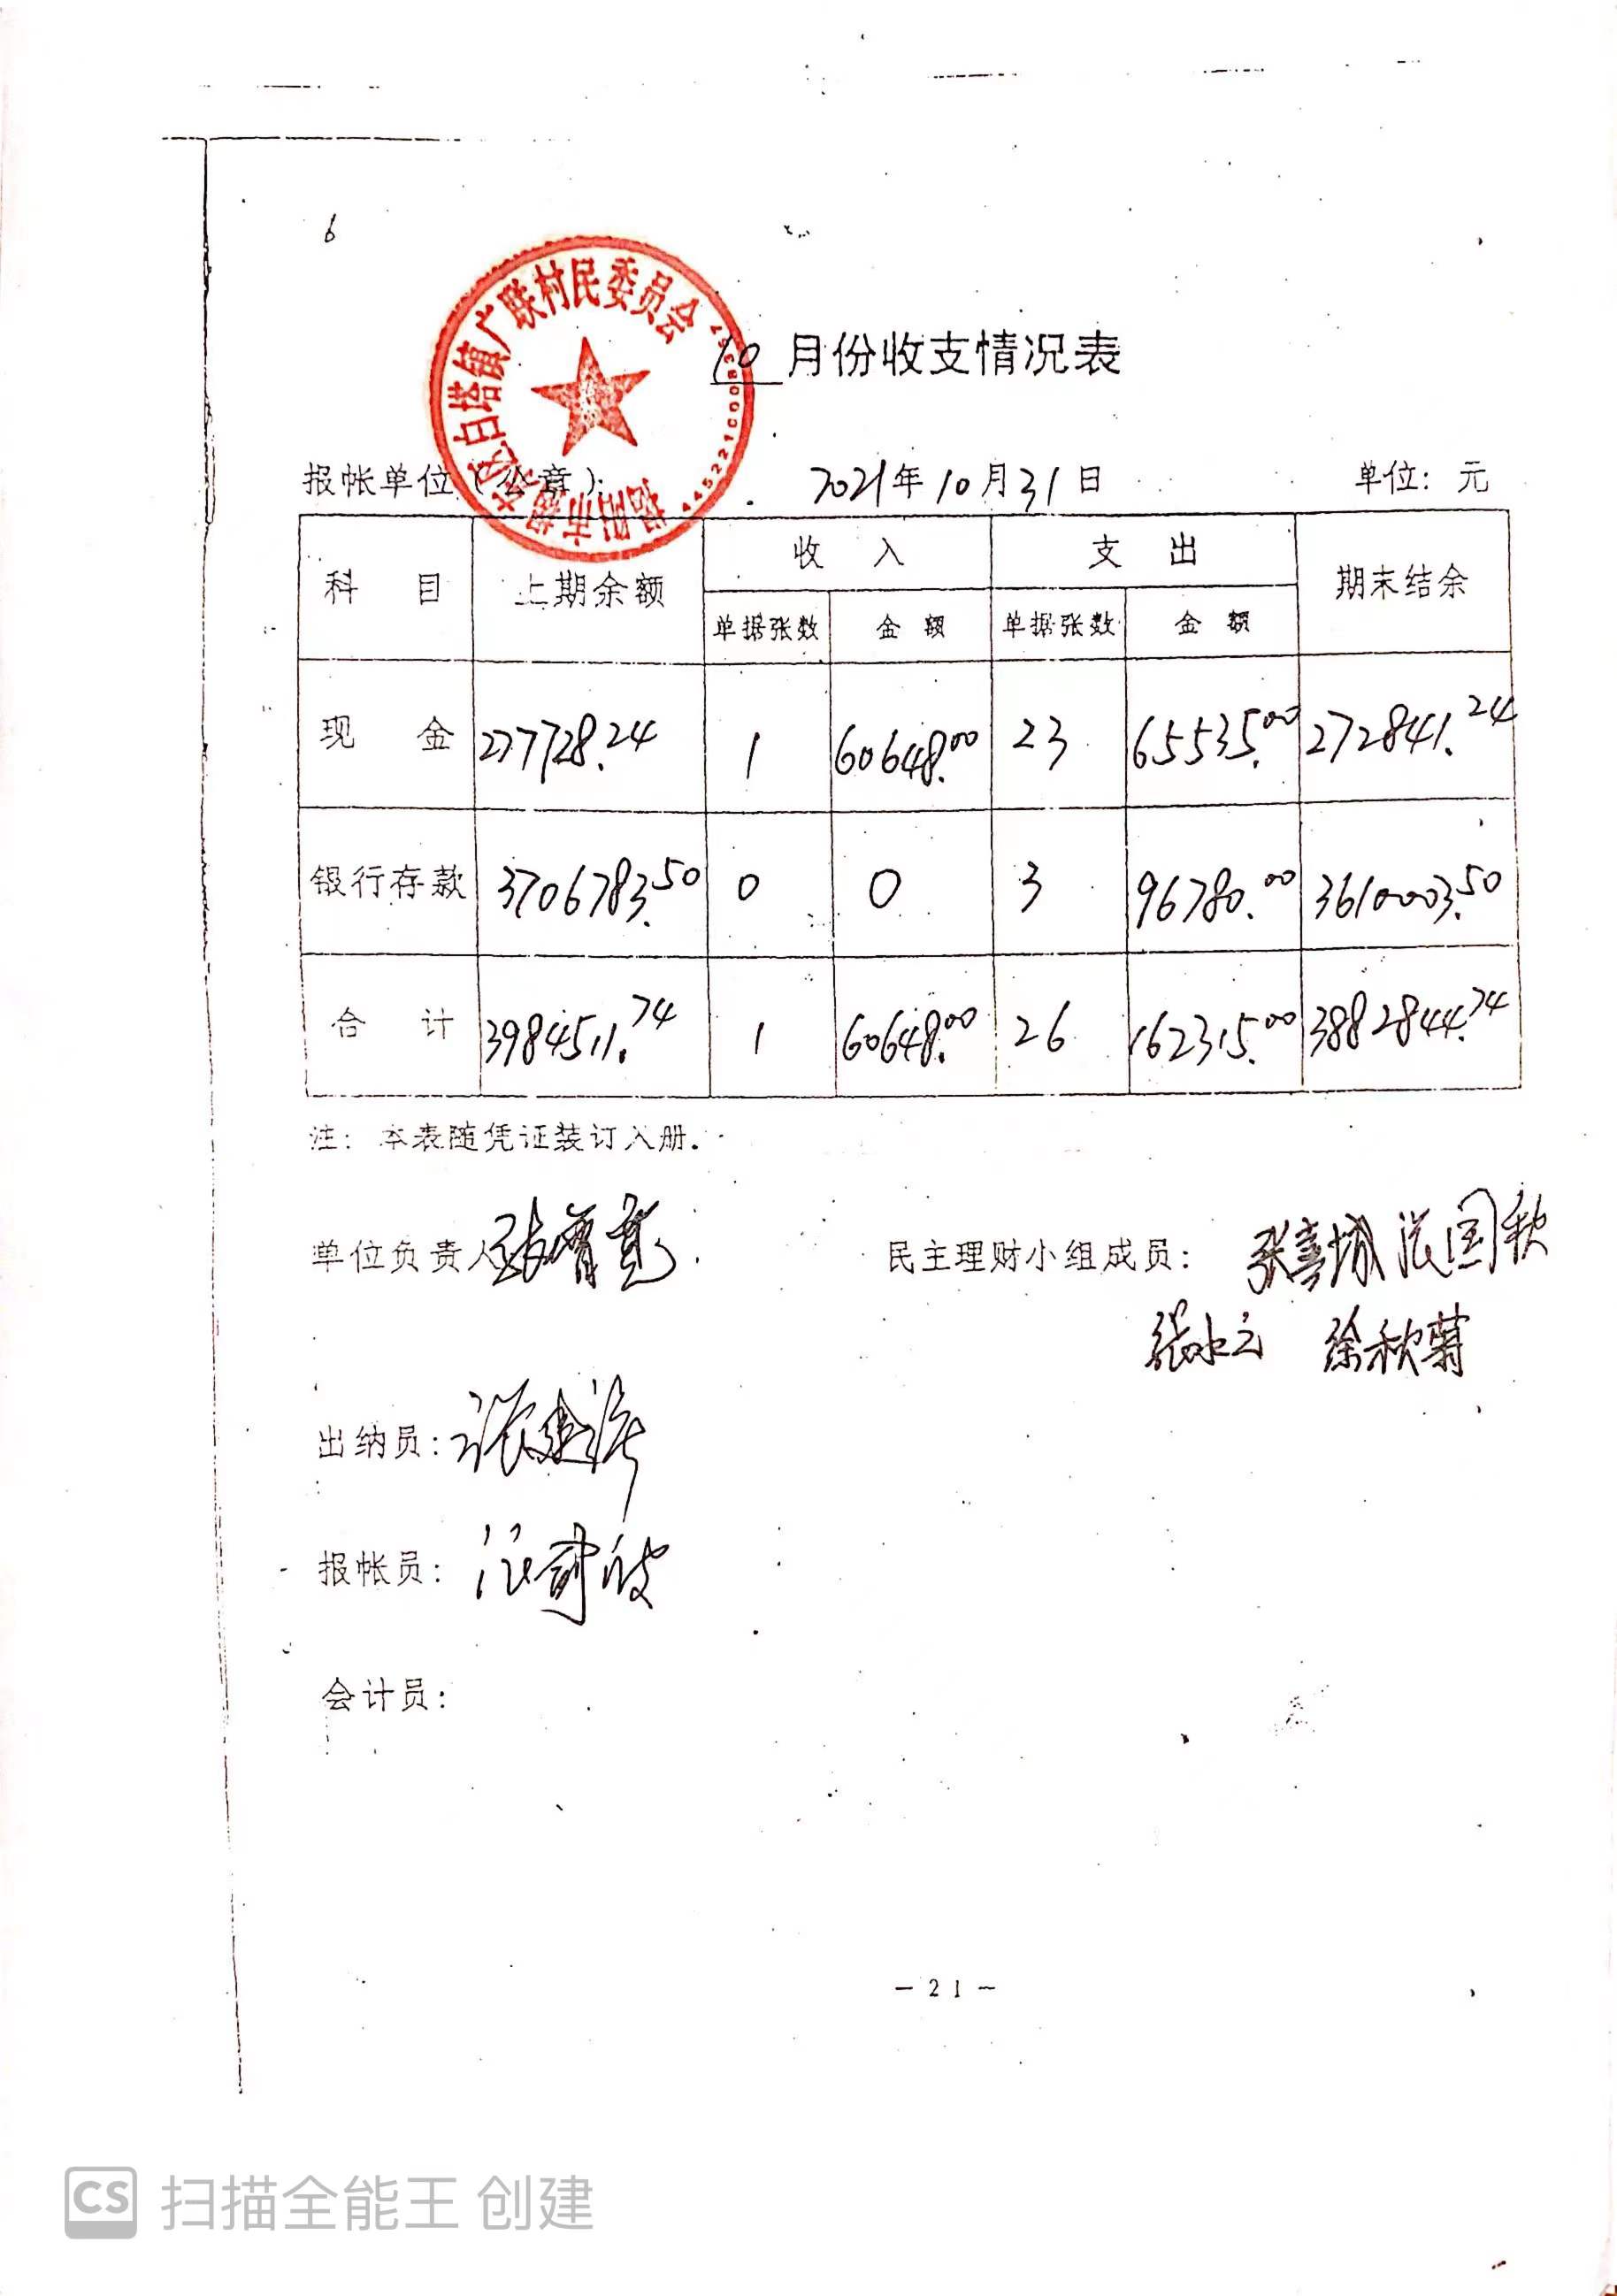 6
揭阳市揭东区白塔镇广联村民委员会
10 月份收支情况表
报帐单位(公章): 2021年10月31日 单位: 元
科 目 上期余额 收 入 支 出 期末结余
单据张数 金 额 单据张数 金 额
现 金 277728.24 1 60648.00 23 65535.00 272841.24
银行存款 3706783.50 0 0 3 96780.00 3610003.50
合 计 3984511.74 1 60648.00 26 162315.00 3882844.74
注: 本表随凭证装订入册.
单位负责人 民主理财小组成员: 张喜城 张国秋
张水云 徐秋菊
出纳员:
报帐员:
会计员:
- 21 -
CS 扫描全能王 创建